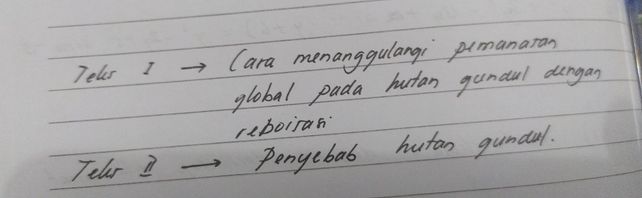 Teks I → Cara menanggulangi pemanasan
global pada hutan gundul dengan
reboisasi
Teks II → Penyebab hutan gundul.